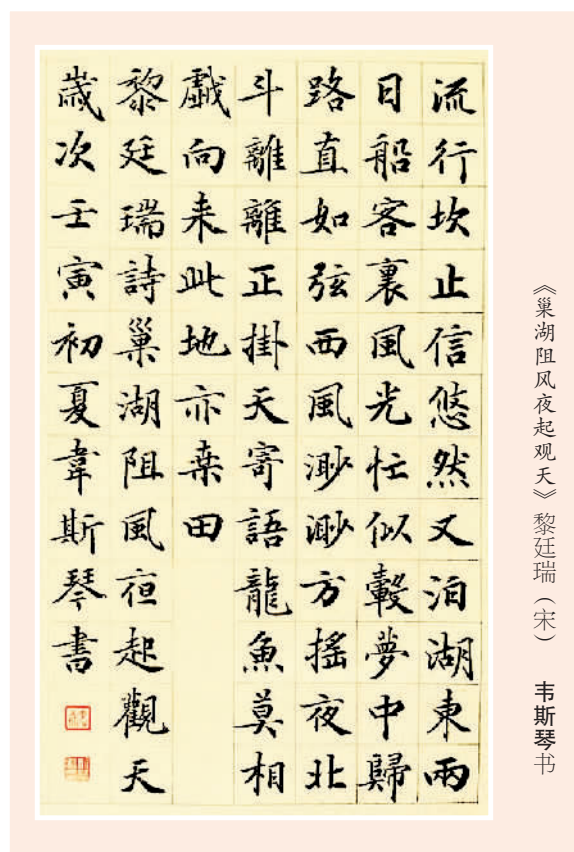 流行坎止信悠然又泊湖東兩
日船客裏風光忙似轂夢中歸
路直如弦西風渺渺方搖夜北
斗離離正掛天寄語龍魚莫相
戲向来此地亦桒田
黎廷瑞詩巢湖阻風夜起觀天
歲次壬寅初夏韋斯琴書
《巢湖阻风夜起观天》黎廷瑞（宋） 韦斯琴书